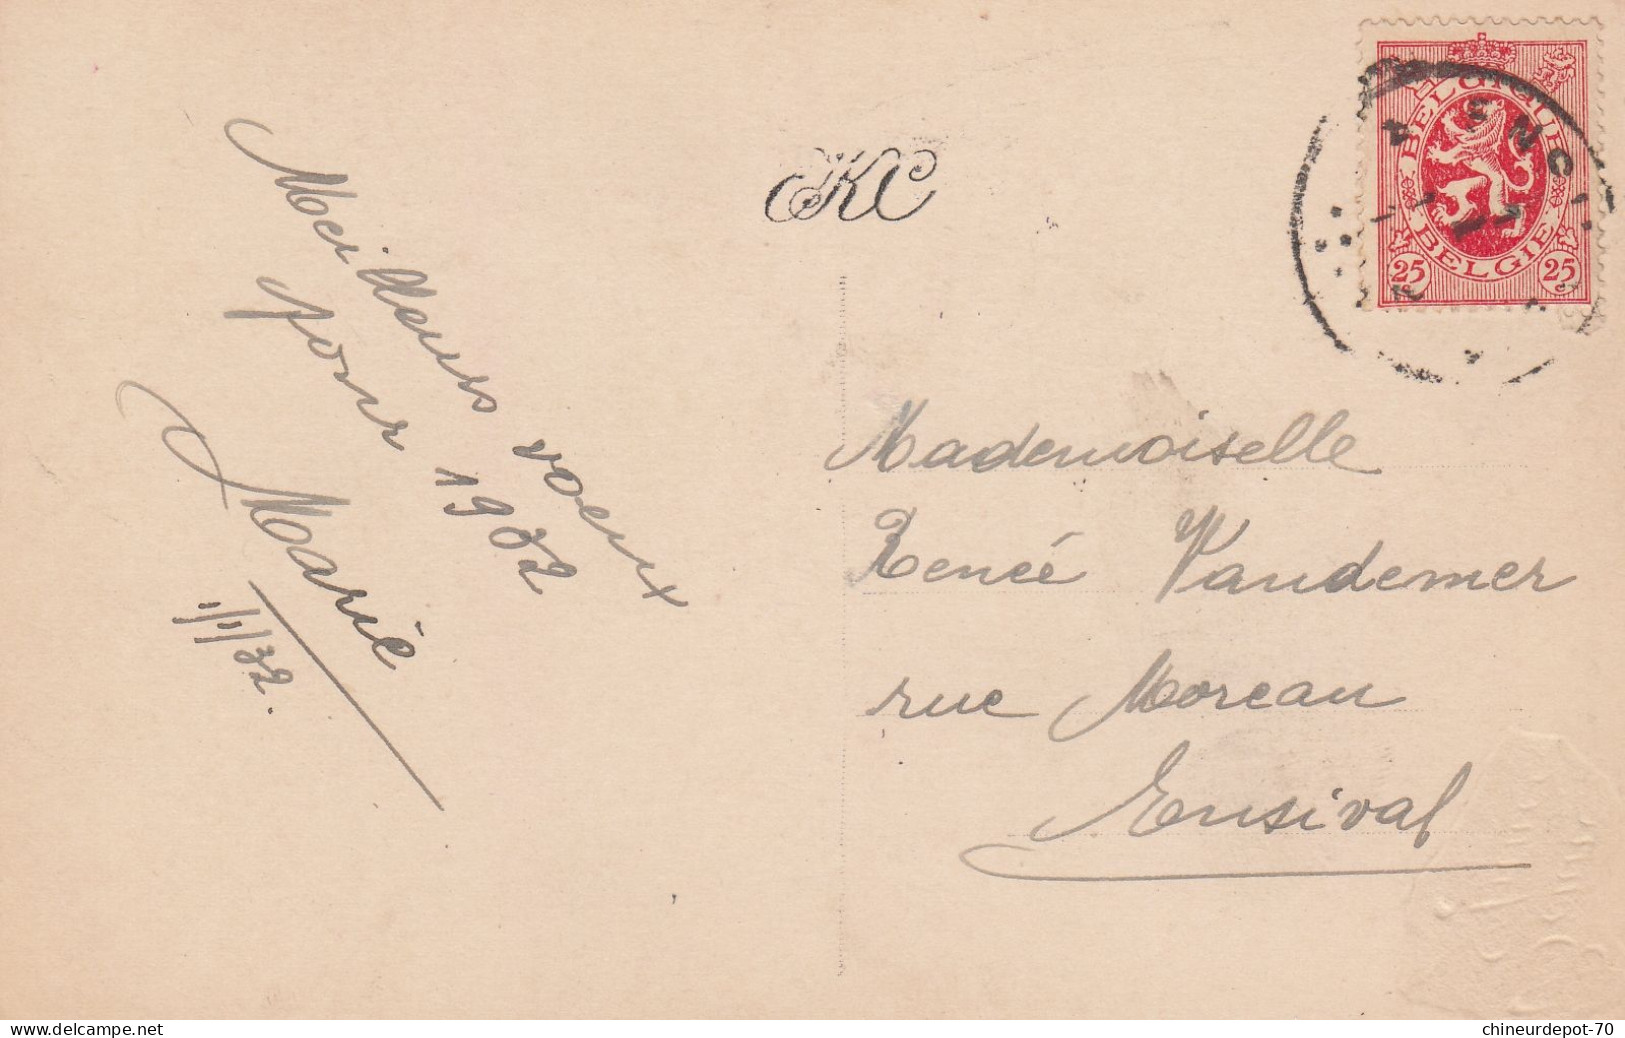 Meilleurs voeux
pour 1932
Marie
1/1/32.
EKC
BELGIQUE
BELGIË
25 25
Mademoiselle
Renée Vandemer
rue Moreau
Ensival
www.delcampe.net
chineurdepot-70